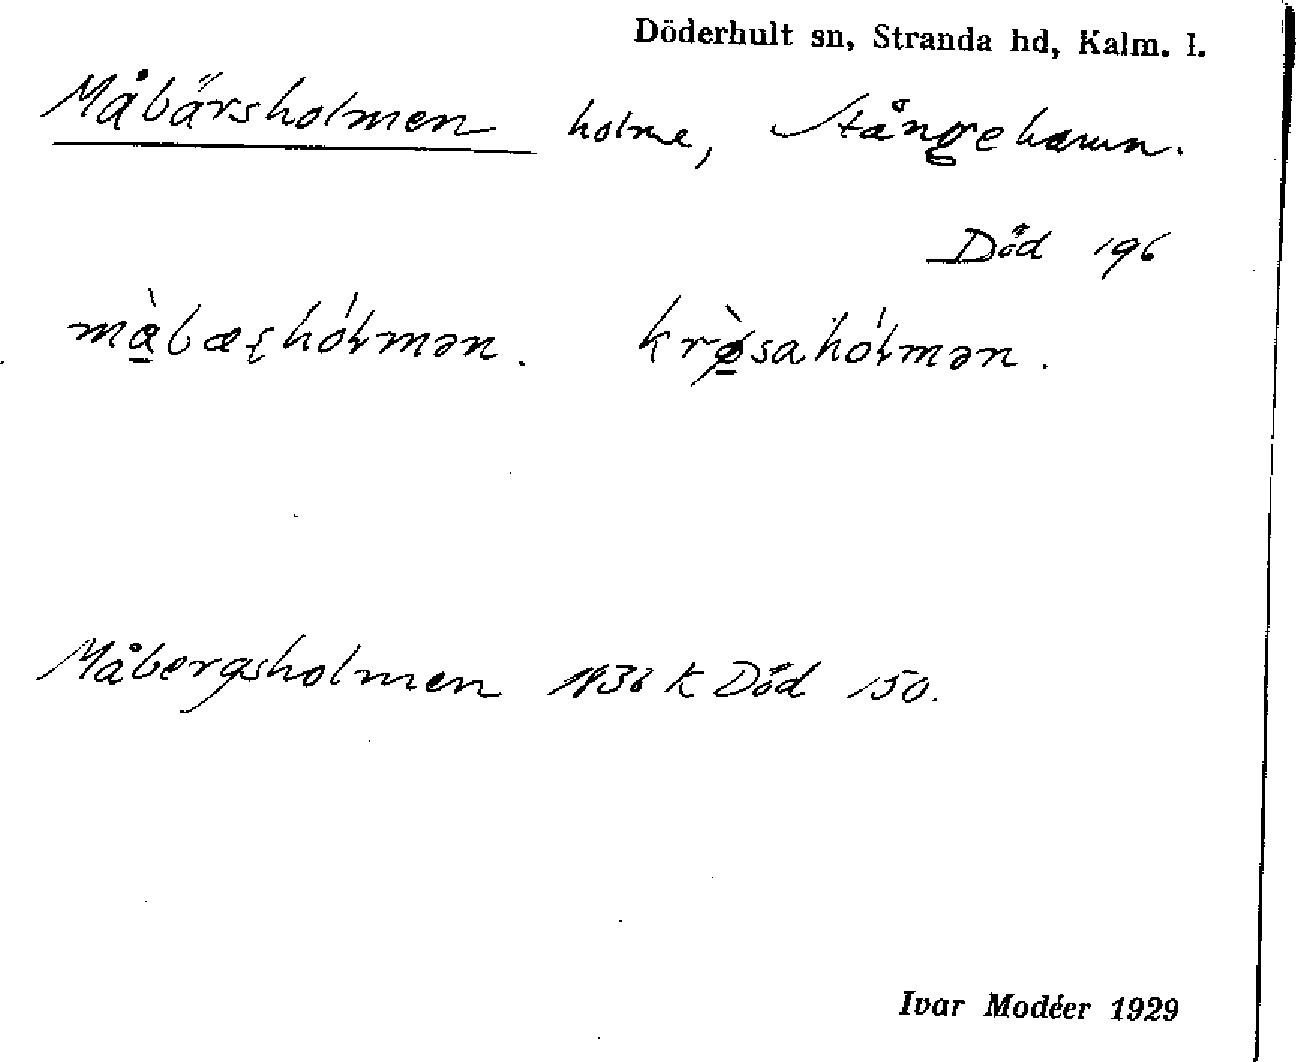 Döderhult sn, Stranda hd, Kalm. l.
Måbärsholmen holme, Stångehamn.
Död 196
mà̱bæꞩhólmən. krø̱̀sahólmən.
Måbergsholmen 1836 K Död 150.
Ivar Modéer 1929